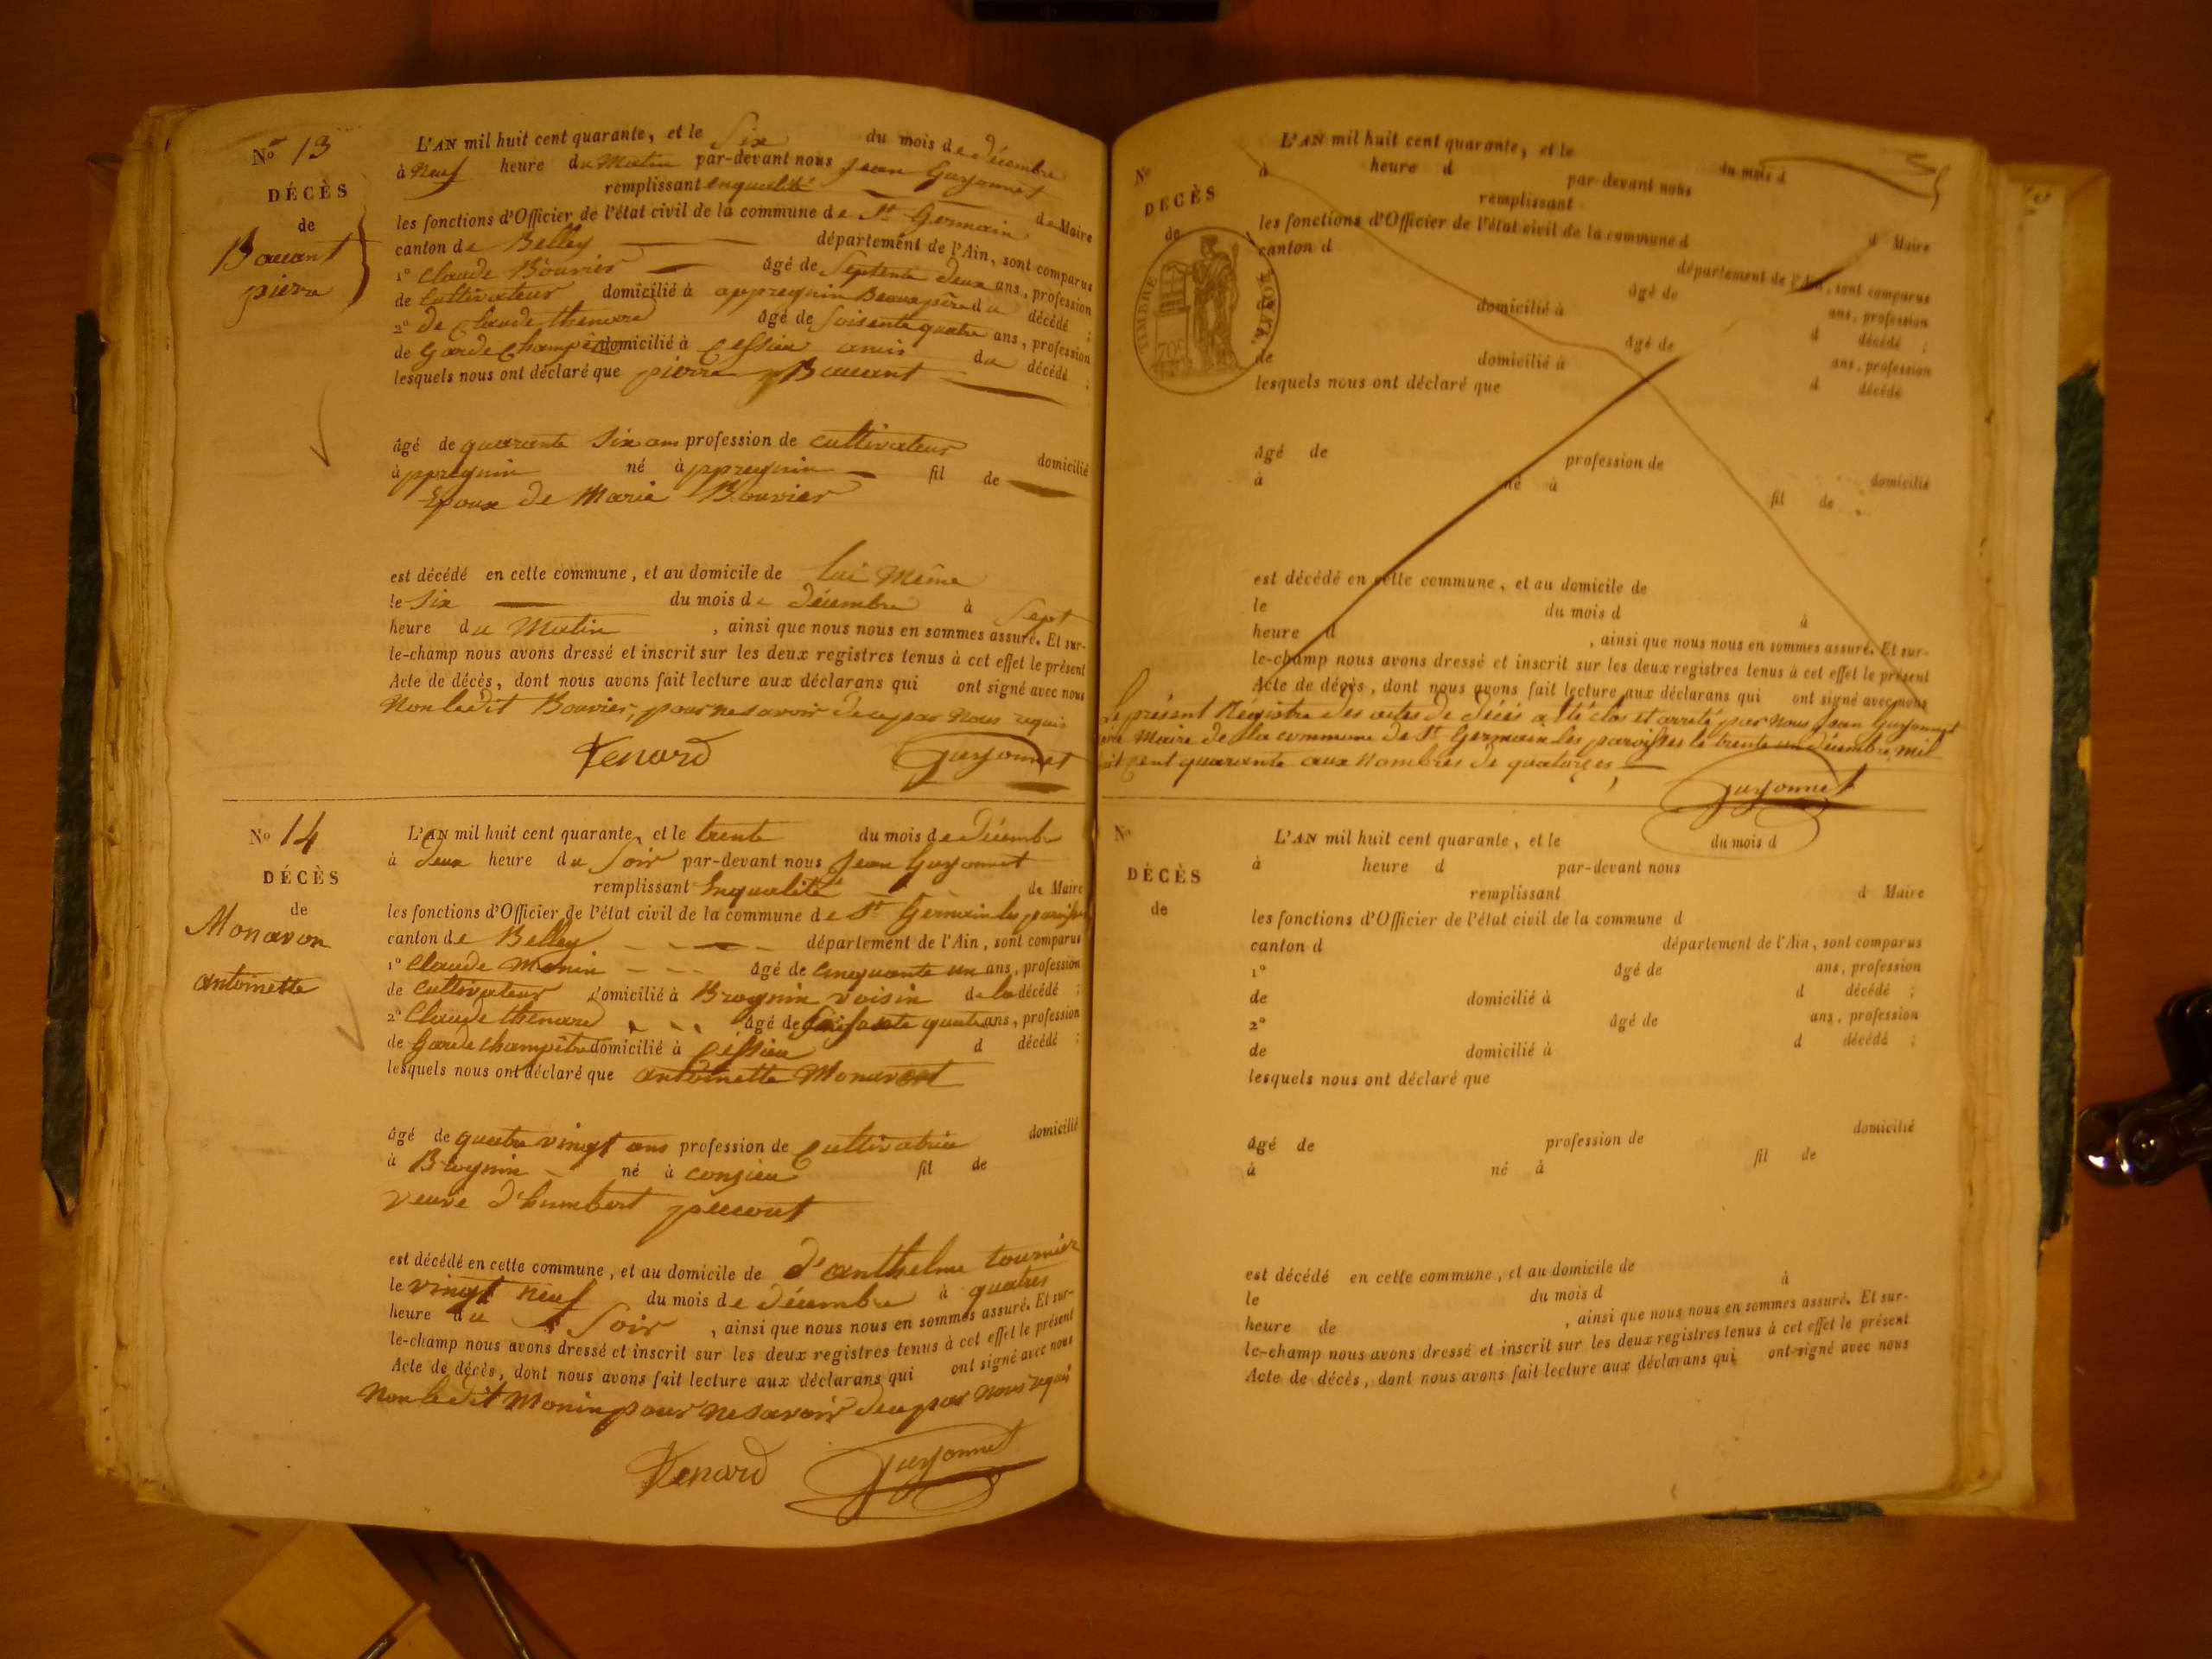 No 13
DÉCÈS
de
Bavant
pierre
L'AN mil huit cent quarante, et le Six du mois de décembre
à Neuf heure du Matin par-devant nous Jean Guyonnet
remplissant enqualité de Maire
les fonctions d'Officier de l'état civil de la commune de St Germain
canton de Belley département de l'Ain, sont comparus
1° Claude Bouvier âgé de Septente deux ans, profession
de Cultivateur domicilié à appregnin Beaupère du décédé ;
2° de Claude thenard âgé de soisente quatre ans, profession
de Garde Champêtre domicilié à Cessieu amis du décédé ;
lesquels nous ont déclaré que pierre Bavant
âgé de quarante Six ans profession de cultivateur domicilié
à ppregnin né à ppregnin fil de
Epoux de Marie Bouvier
est décédé en cette commune, et au domicile de lui Même
le Six du mois de décembre à Sept
heure du Matin , ainsi que nous nous en sommes assuré. Et sur-
le-champ nous avons dressé et inscrit sur les deux registres tenus à cet effet le présent
Acte de décès, dont nous avons fait lecture aux déclarans qui ont signé avec nous
Non ledit Bouvier, pour ne savoir de ce par Nous requis
Tenard Guyonnet
No 14
DÉCÈS
de
Monavon
antoinette
L'AN mil huit cent quarante, et le trente du mois de décembre
à deux heure du Soir par-devant nous Jean Guyonnet
remplissant Enqualité de Maire
les fonctions d'Officier de l'état civil de la commune de St Germain les paroisses
canton de Belley département de l'Ain, sont comparus
1° Claude Monin âgé de Cinquante un ans, profession
de cultivateur domicilié à Brognin voisin de la décédé ;
2° Claude thenard âgé de Soisante quatre ans, profession
de Garde champêtre domicilié à Cessieu d décédé ;
lesquels nous ont déclaré que antoinette Monavont
âgé de quatre vingt ans profession de Cultivatrice domicilié
à Brognin né à conzieu fil de
veuve d'humbert peccout
est décédé en cette commune, et au domicile de d'anthelme tournier
le vingt neuf du mois de décembre à quatres
heure du Soir , ainsi que nous nous en sommes assuré. Et sur-
le-champ nous avons dressé et inscrit sur les deux registres tenus à cet effet le présent
Acte de décès, dont nous avons fait lecture aux déclarans qui ont signé avec nous
Non ledit Monin pour ne savoir de ce par Nous requis
Tenard Guyonnet
No
DÉCÈS
de
TIMBRE ROYAL
70c
L'AN mil huit cent quarante, et le du mois d
à heure d par-devant nous
remplissant d Maire
les fonctions d'Officier de l'état civil de la commune d
canton d département de l'Ain, sont comparus
âgé de ans, profession
de domicilié à d décédé ;
âgé de ans, profession
de domicilié à d décédé
lesquels nous ont déclaré que
âgé de profession de domicilié
à né à fil de
est décédé en cette commune, et au domicile de
le du mois d à
heure d , ainsi que nous nous en sommes assuré. Et sur-
le-champ nous avons dressé et inscrit sur les deux registres tenus à cet effet le présent
Acte de décès, dont nous avons fait lecture aux déclarans qui ont signé avec nous
Le présent Régistre des actes de décès a été clos et arrêté par Nous Jean Guyonnet
Maire de la commune de St Germain les paroisses le trente un décembre Mil
huit cent quarante aux Nombres de quatorzes
Guyonnet
No
DÉCÈS
de
L'AN mil huit cent quarante, et le du mois d
à heure d par-devant nous
remplissant d Maire
les fonctions d'Officier de l'état civil de la commune d
canton d département de l'Ain, sont comparus
1° âgé de ans, profession
de domicilié à d décédé ;
2° âgé de ans, profession
de domicilié à d décédé ;
lesquels nous ont déclaré que
âgé de profession de domicilié
à né à fil de
est décédé en cette commune, et au domicile de
le du mois d à
heure de , ainsi que nous nous en sommes assuré. Et sur-
le-champ nous avons dressé et inscrit sur les deux registres tenus à cet effet le présent
Acte de décès, dont nous avons fait lecture aux déclarans qui ont signé avec nous